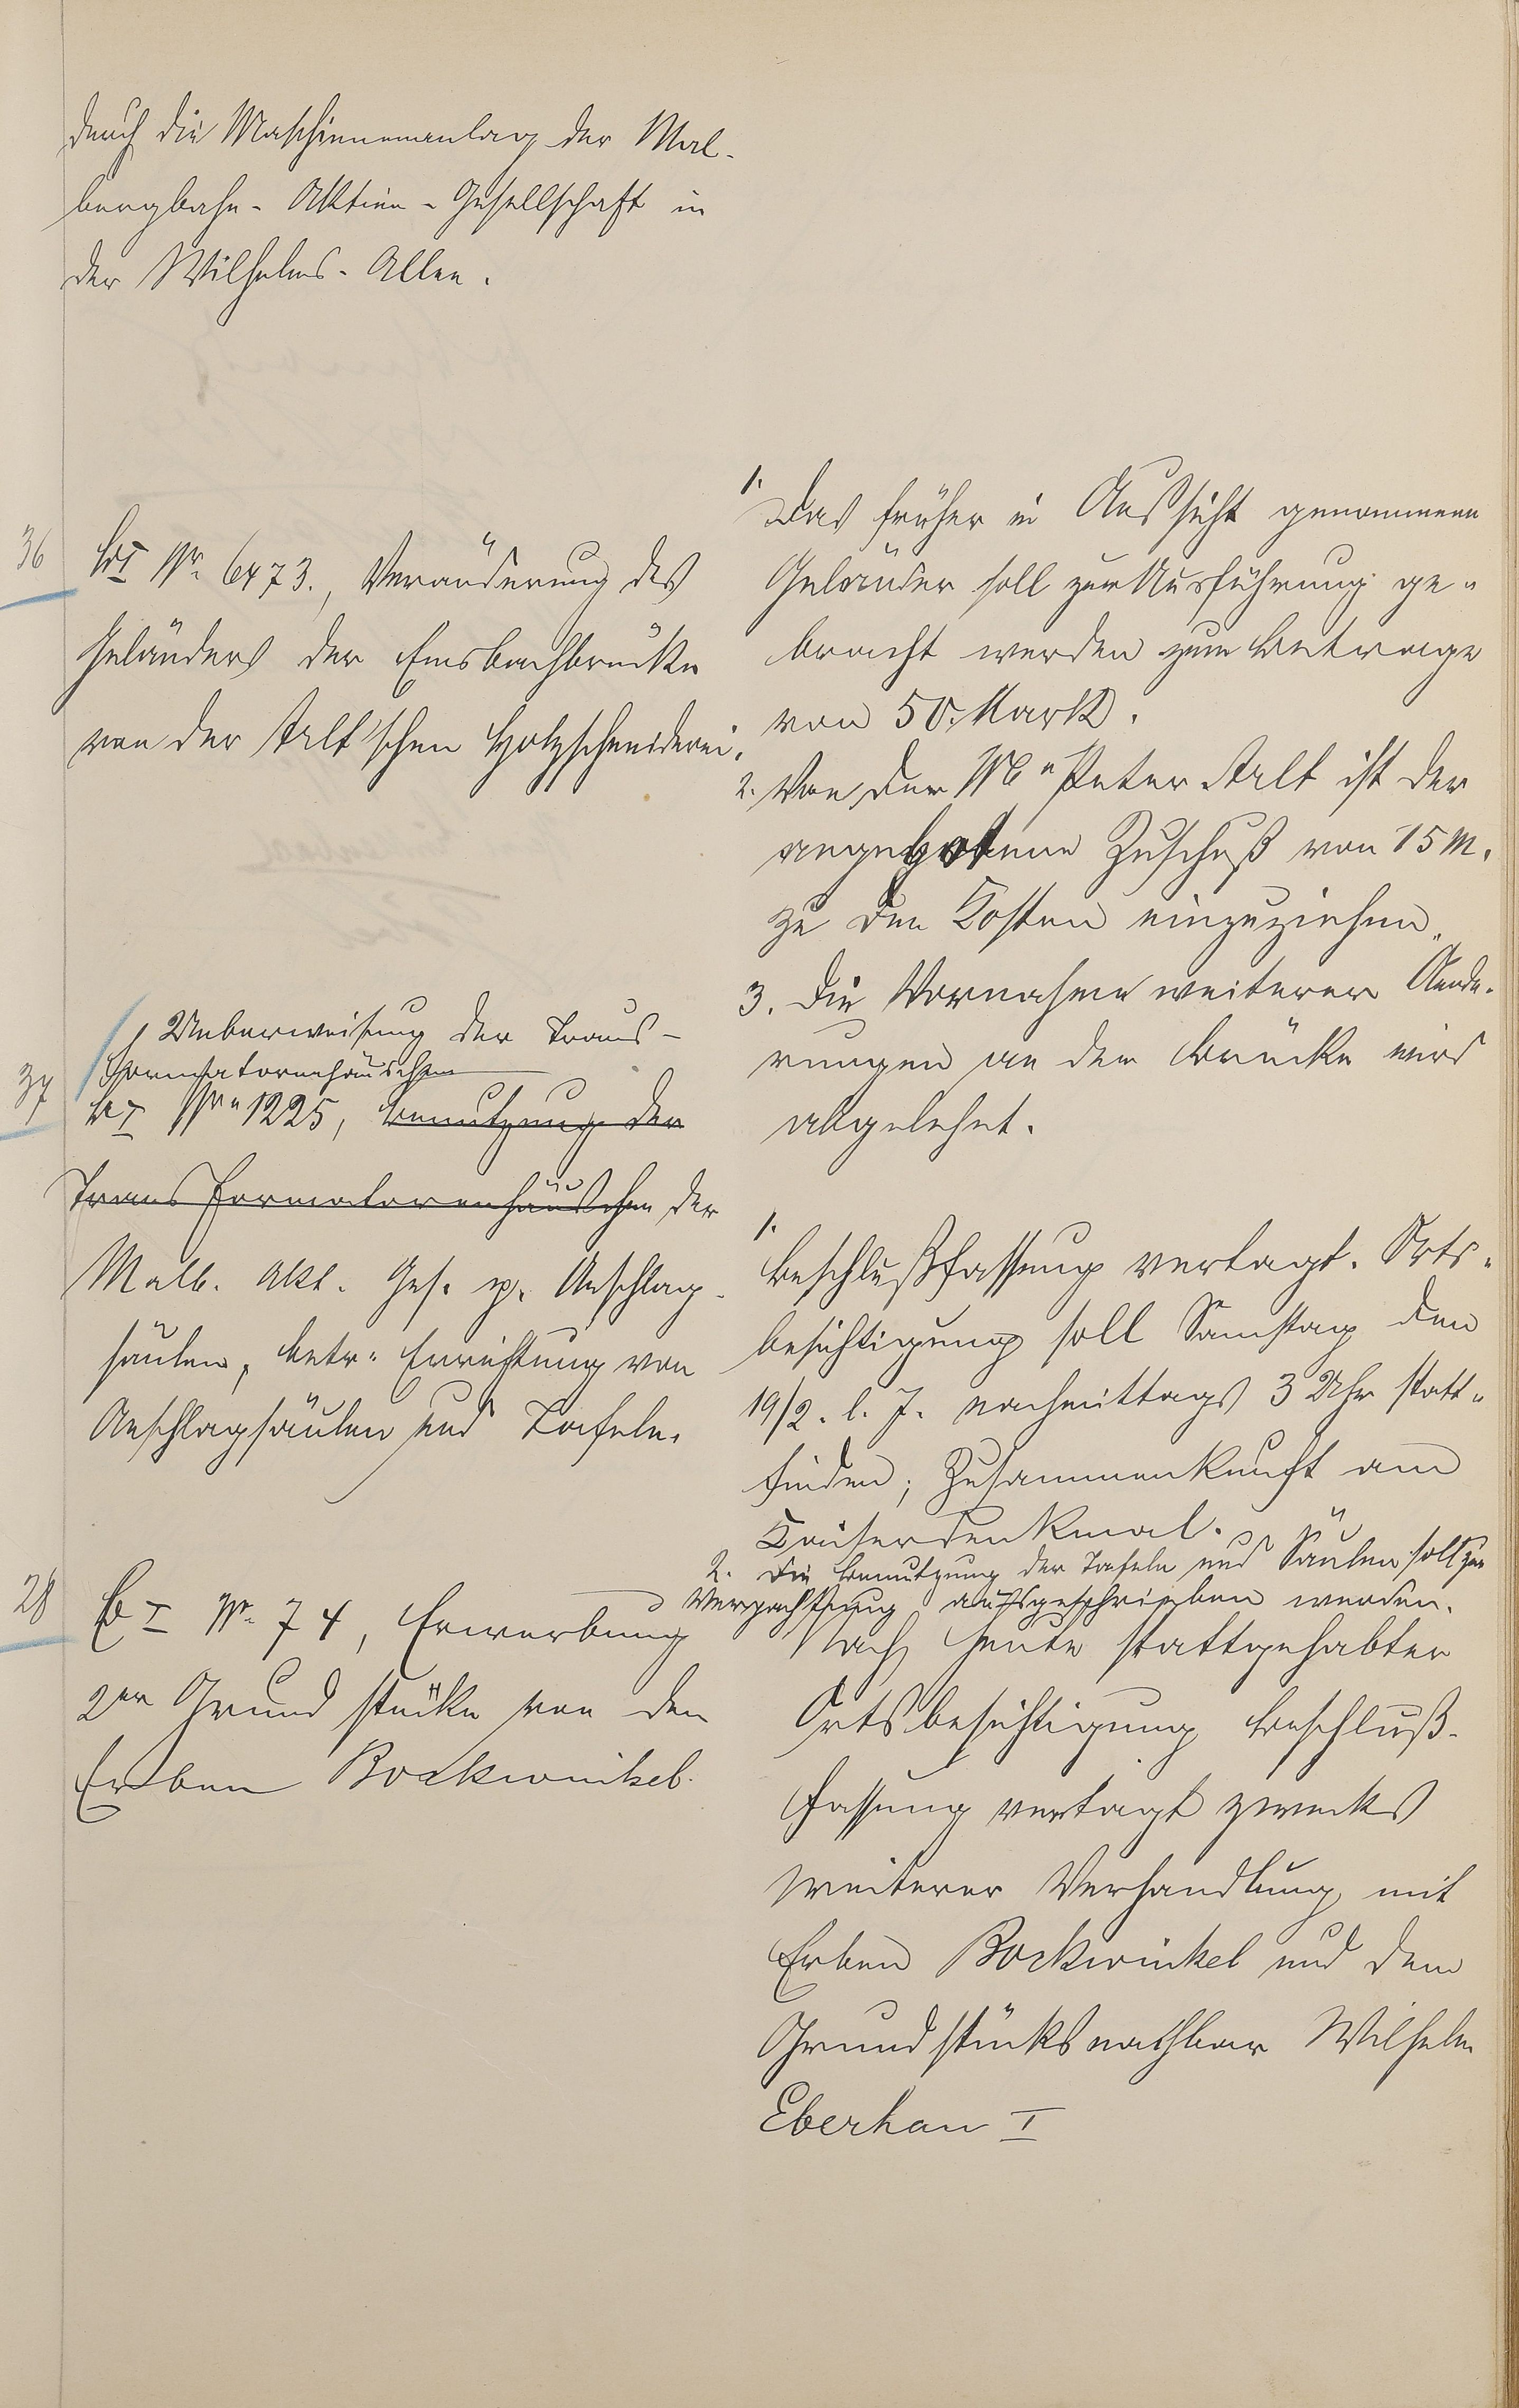 durch die Maschinenanlag der Mal-
bergbahn-Aktien-Gesellschaft in
der Wilhelms-Allee.
36
B I Nr. 6473., Veränderung des
Geländers der Emsbachbrücke
von der Arlt'schen Holzschneiderei.
1. Das früher in Aussicht genommene
Geländer soll zur Ausführung ge-
bracht werden zum Betrage
von 50 Mark.
2. Von der Peter Arlt ist der
angebotene Zuschuß von 15 M.
zu den Kosten einzuziehen.
3. Die Vornahme weiterer Aende-
rungen an der Brücke wird
abgelehnt.
37
Ueberweisung der Trans-
formatorenhäuschen
B I Nr. 1225, Benutzung der
Transformatorenhäuschen der
Malb. Akt. Ges. p. Anschlag-
säulen, betr. Errichtung von
Anschlagsäulen und Tafeln.
1. Beschlußfassung vertagt. Orts-
besichtigung soll Samstag den
19/2. l. J. nachmittags 3 Uhr statt-
finden; Zusammenkunft am
Kaiserdenkmal.
2. Die Benutzung der Tafeln und Säulen soll zur
Verpachtung ausgeschrieben werden.
28
B I Nr. 74, Erwerbung
2er Grundstücke von den
Erben Bockwinkel.
Nach heute stattgehabter
Ortsbesichtigung Beschluß-
fassung vertagt zwecks
weiterer Verhandlung mit
Erben Bockwinkel und dem
Grundstücksnachbar Wilhelm
Eberhan I